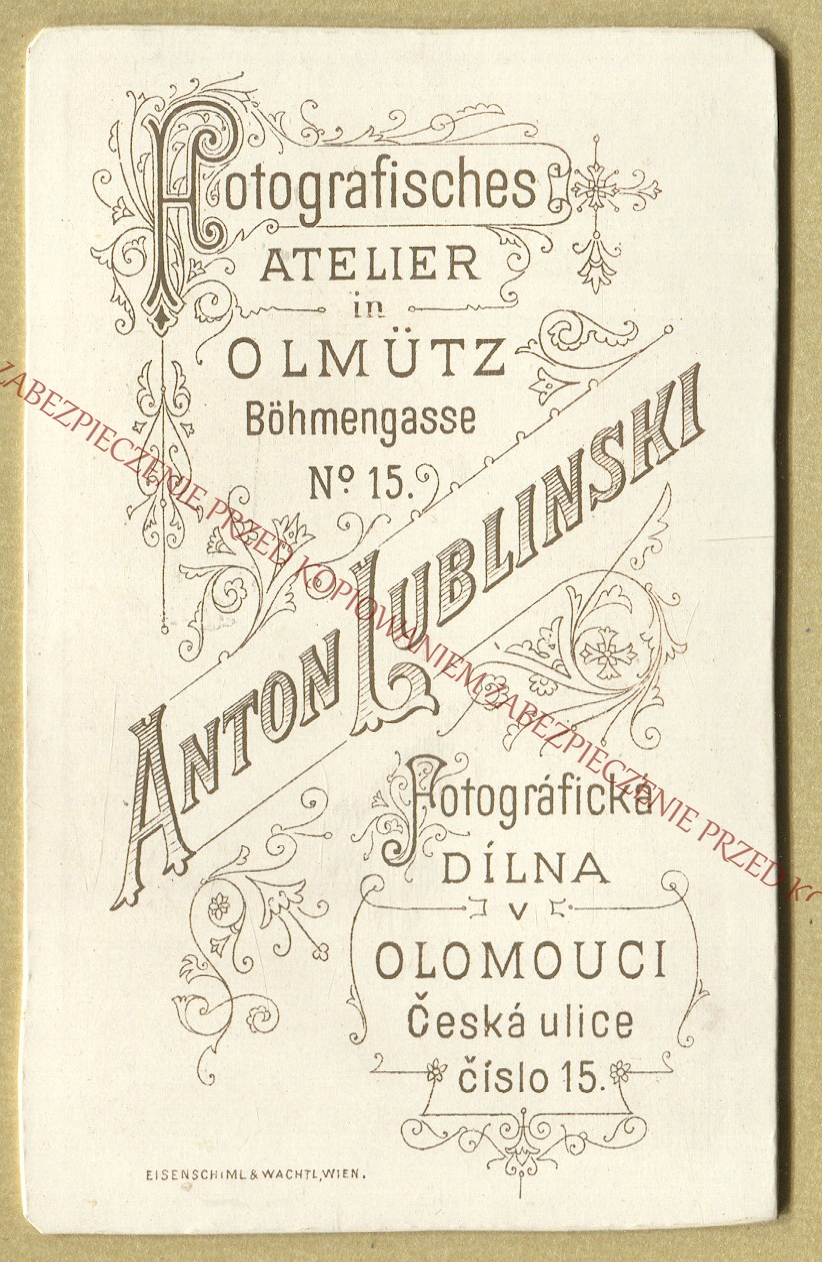 Fotografisches
ATELIER
in
OLMÜTZ
Böhmengasse
Nº 15.
ANTON LUBLINSKI
Fotográfická
DÍLNA
v
OLOMOUCI
Česká ulice
číslo 15.
EISENSCHIML & WACHTL, WIEN.
ZABEZPIECZENIE PRZED KOPIOWANIEM ZABEZPIECZENIE PRZED KO